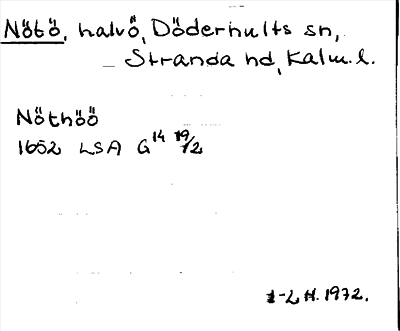 Nötö, halvö, Döderhults sn,
Stranda hd, Kalm. l.
Nöthöö
1652 LSA G14 19/2
1-2 H. 1972.